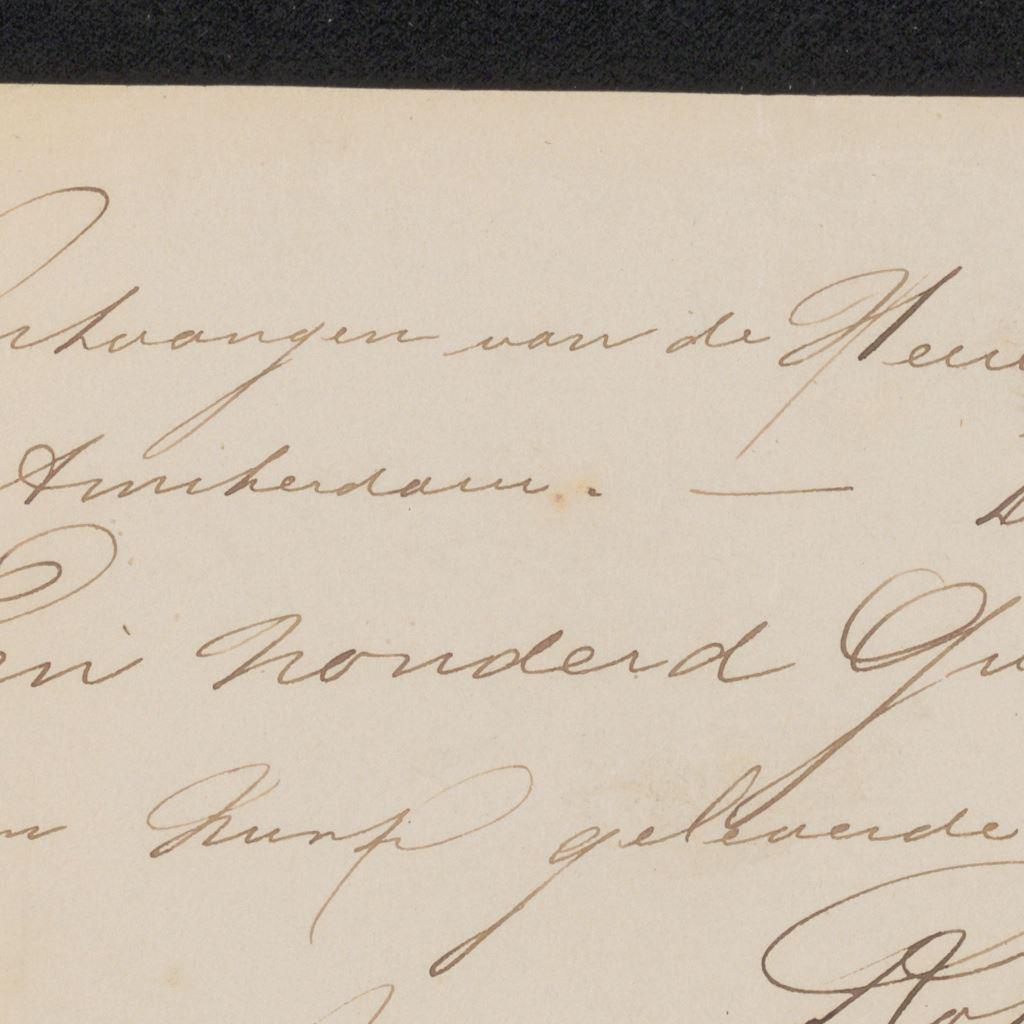 Ontvangen van de Heer
Amsterdam. —
Een honderd Gu
geleverde